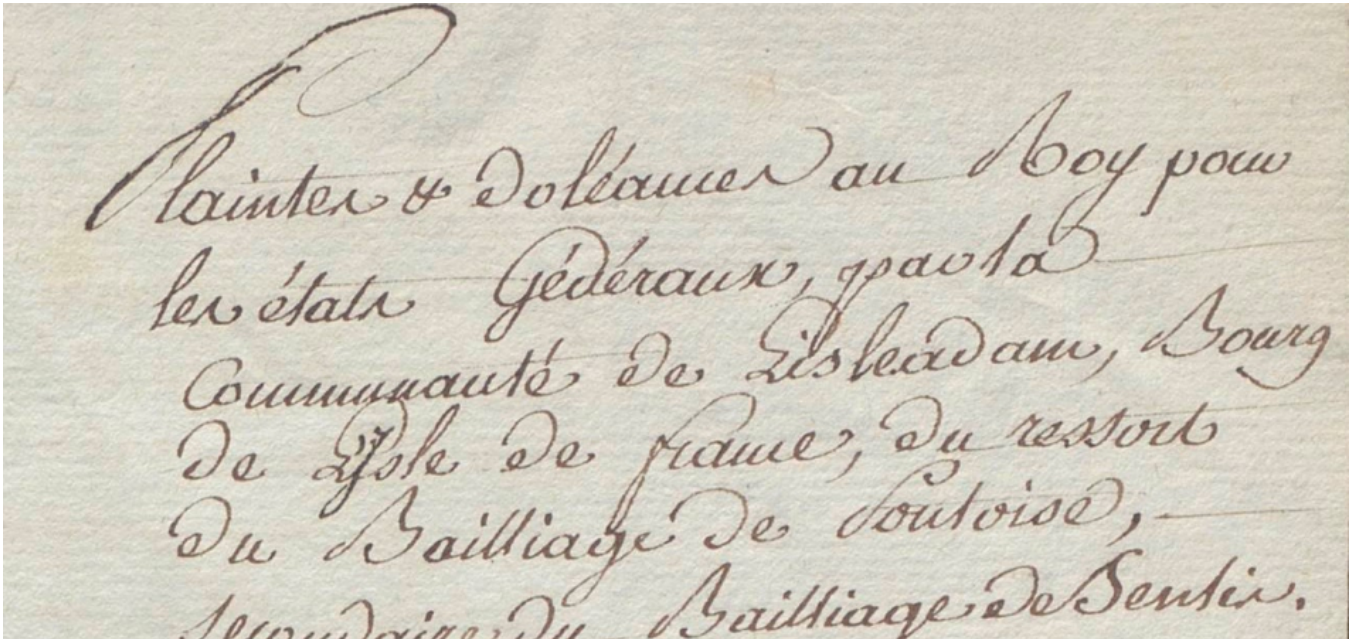 Plaintes & doléances au Roy pour
les états Gédéraux, par la
Communauté de Lisleadam, Bourg
de Lysle de france, du ressort
du Bailliage de Pontoise,
secondaire du Bailliage de Senlis.